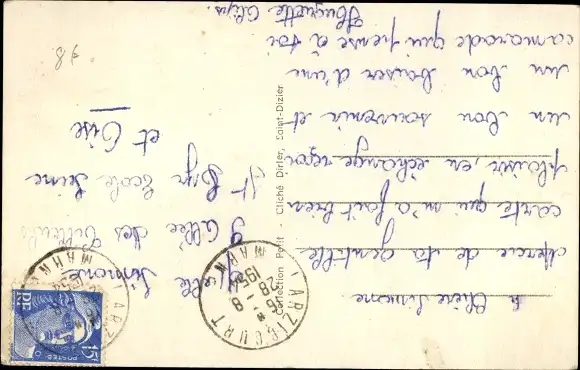 Chère Simone
Merci de ta gentille
carte qui m'a fait bien
plaisir, en échange reçoi
un bon souvenir et
un bon baiser d'une
camarade qui pense à toi
Huguette
Collection Petit - Cliché Dirler, Saint-Dizier
Simone
9 Allée des Tilleuls
St Cyr École Seine
et Oise
98
LARZICOURT
MARNE
18 H
8 - 8
1954
LARZICOURT
MARNE
15F
POSTES